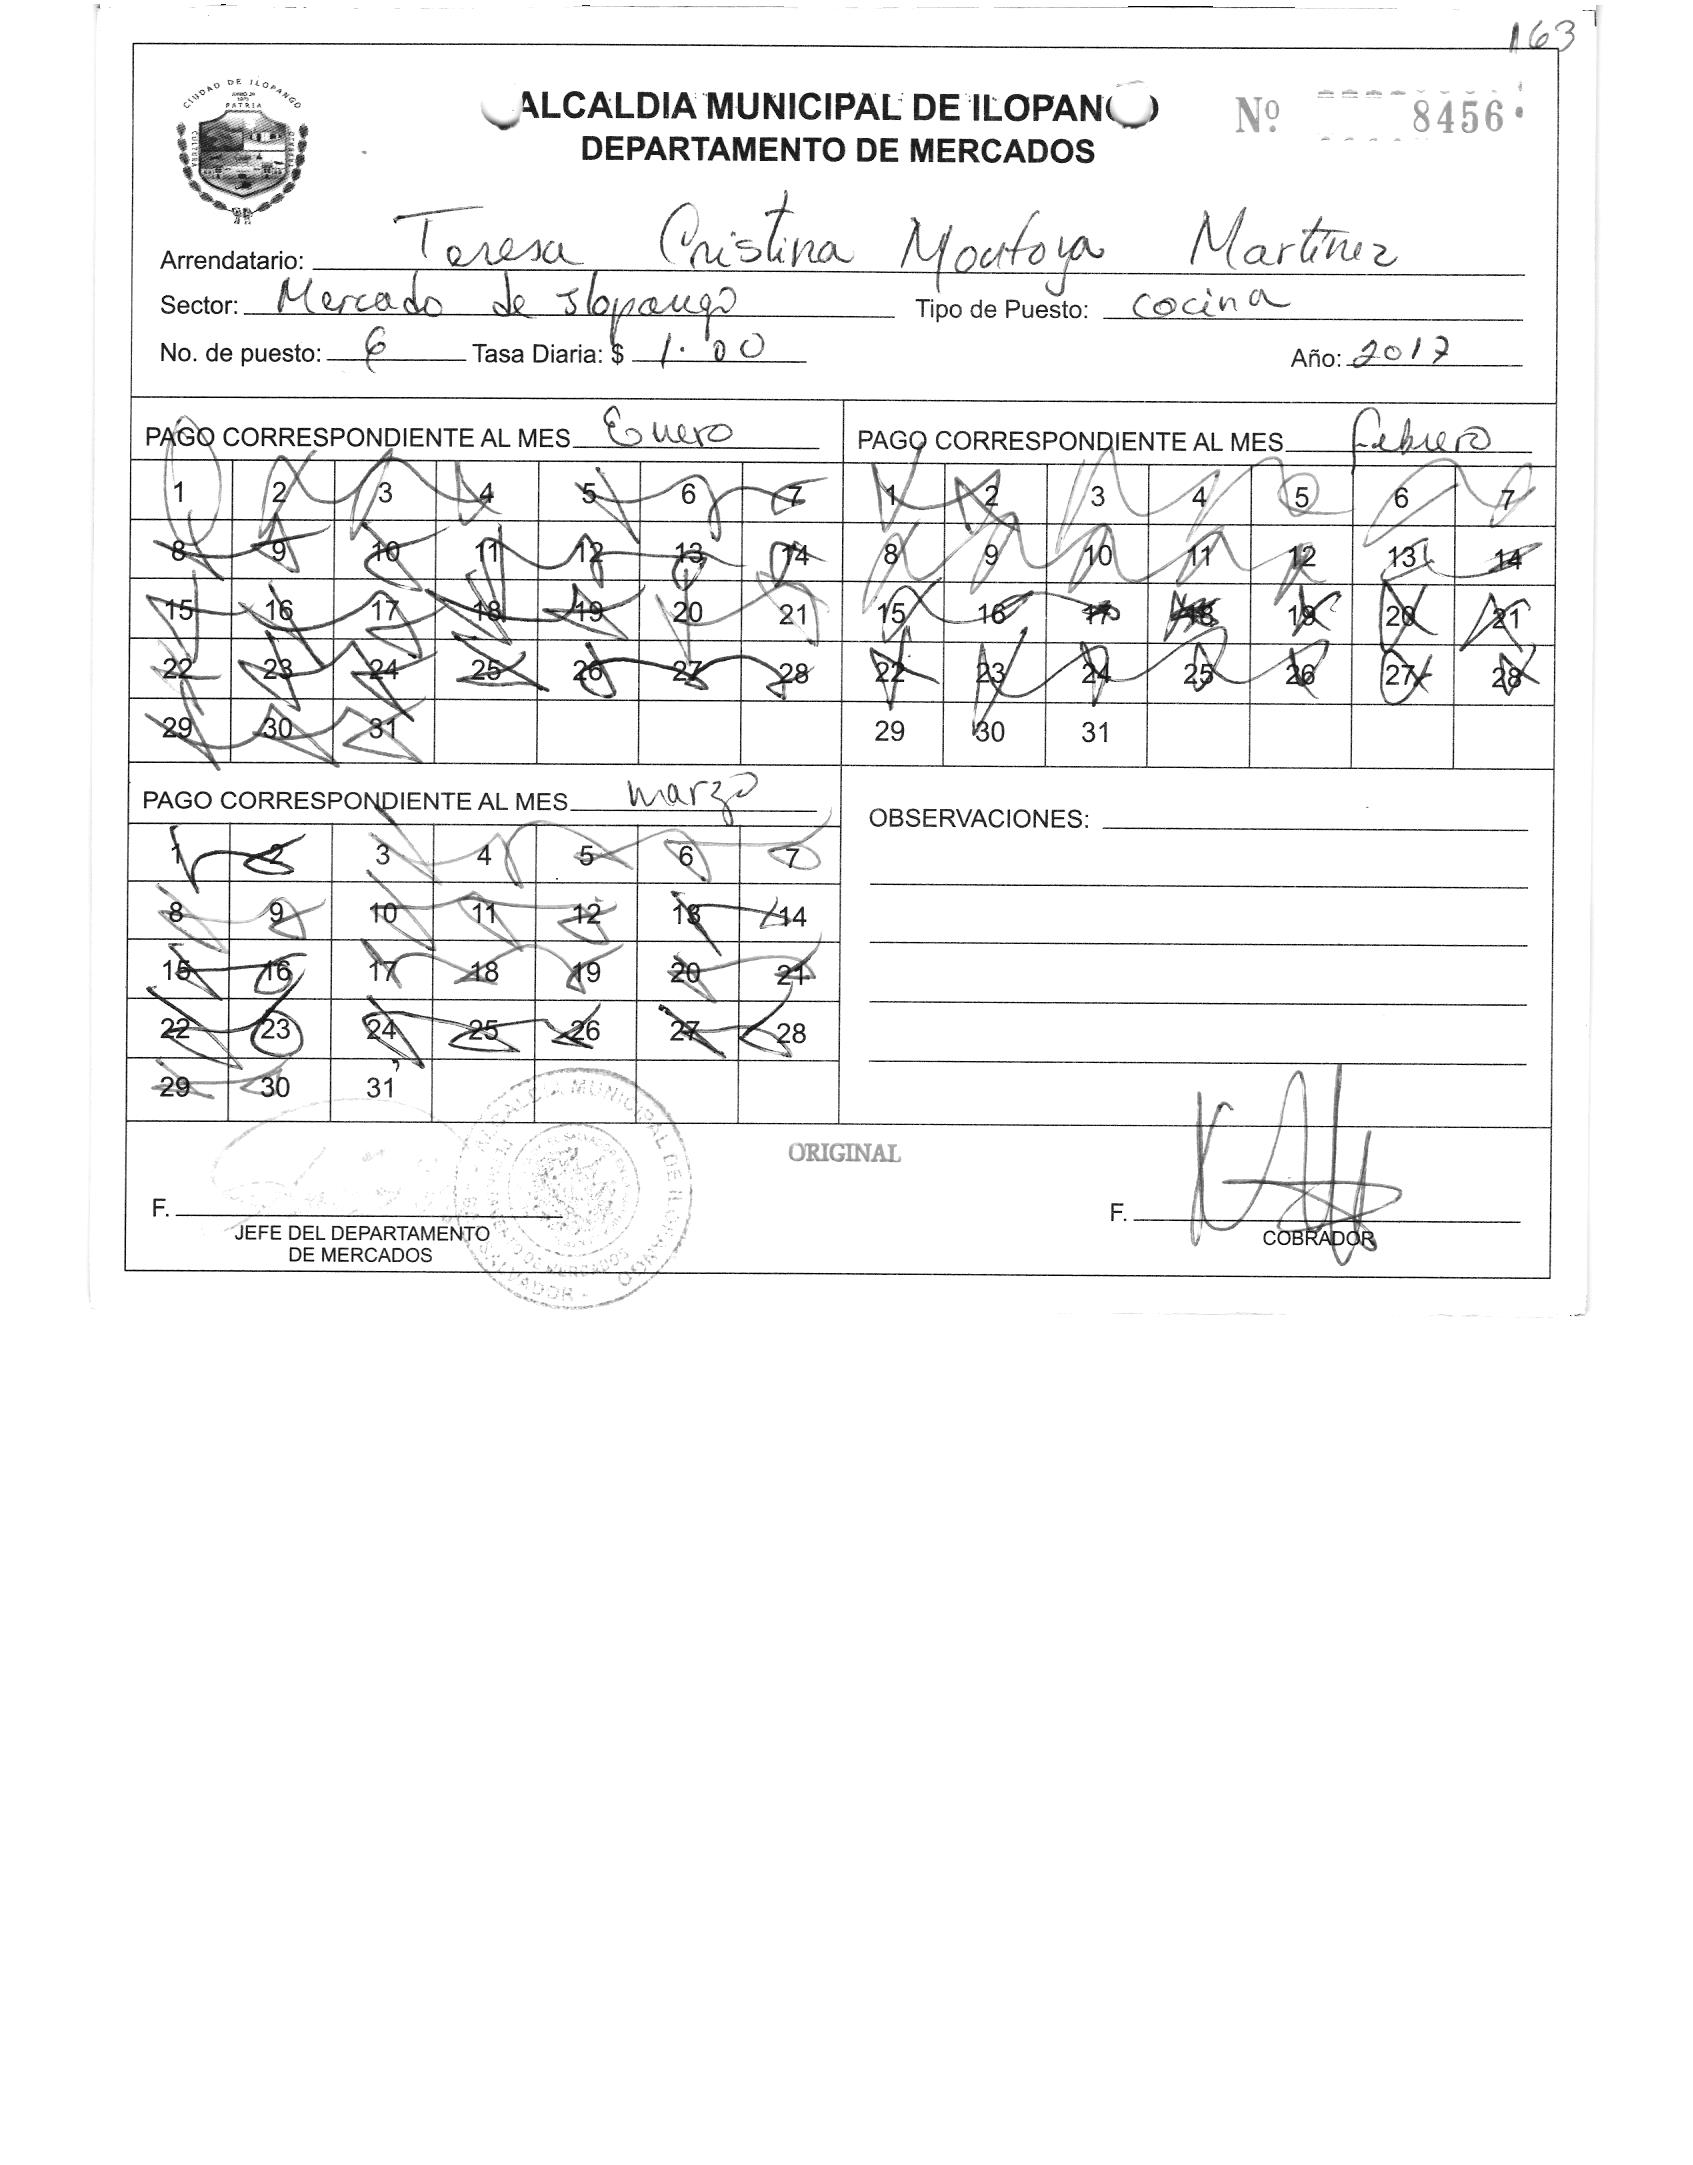 163
CIUDAD DE ILOPANGO
PATRIA
ALCALDIA MUNICIPAL DE ILOPANGO
DEPARTAMENTO DE MERCADOS
Nº 8456
Arrendatario: Teresa Cristina Montoya Martinez
Sector: Mercado de Ilopango Tipo de Puesto: cocina
No. de puesto: 6 Tasa Diaria: $ 1.00 Año: 2017
PAGO CORRESPONDIENTE AL MES Enero
1 2 3 4 5 6 7
8 9 10 11 12 13 14
15 16 17 18 19 20 21
22 23 24 25 26 27 28
29 30 31
PAGO CORRESPONDIENTE AL MES febrero
1 2 3 4 5 6 7
8 9 10 11 12 13 14
15 16 17 18 19 20 21
22 23 24 25 26 27 28
29 30 31
PAGO CORRESPONDIENTE AL MES marzo
1 2 3 4 5 6 7
8 9 10 11 12 13 14
15 16 17 18 19 20 21
22 23 24 25 26 27 28
29 30 31
OBSERVACIONES:
ORIGINAL
F.
JEFE DEL DEPARTAMENTO
DE MERCADOS
ALCALDIA MUNICIPAL DE ILOPANGO
F.
COBRADOR